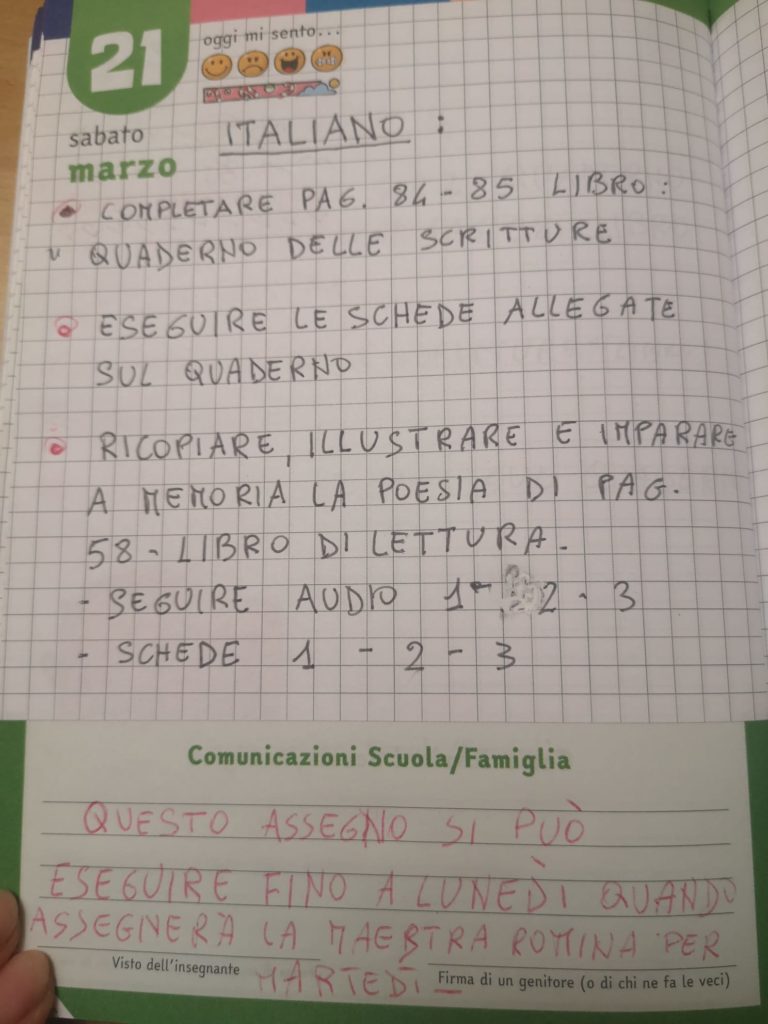 21
oggi mi sento...
sabato
marzo
ITALIANO :
• COMPLETARE PAG. 84-85 LIBRO:
QUADERNO DELLE SCRITTURE
• ESEGUIRE LE SCHEDE ALLEGATE
SUL QUADERNO
• RICOPIARE, ILLUSTRARE E IMPARARE
A MEMORIA LA POESIA DI PAG.
58 - LIBRO DI LETTURA.
- SEGUIRE AUDIO 1 - 2 - 3
- SCHEDE 1 - 2 - 3
Comunicazioni Scuola/Famiglia
QUESTO ASSEGNO SI PUÒ
ESEGUIRE FINO A LUNEDÌ QUANDO
ASSEGNERÀ LA MAESTRA ROMINA PER
MARTEDÌ
Visto dell'insegnante
Firma di un genitore (o di chi ne fa le veci)